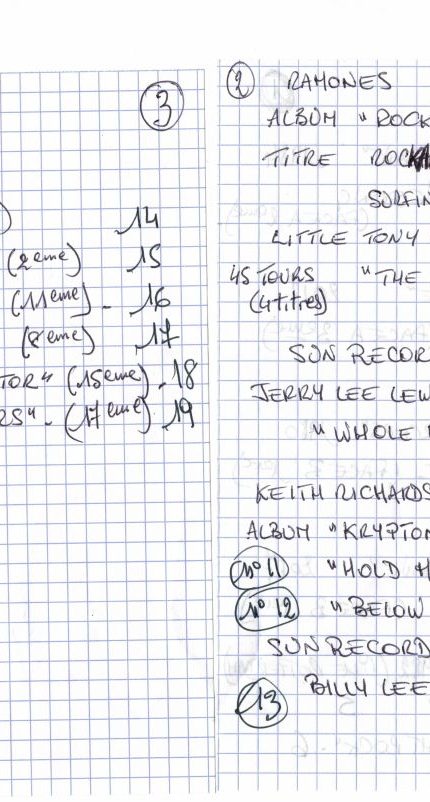 3
) 14
(2eme) 15
(11eme) - 16
(8eme) 17
TOR" (15eme) - 18
RS" - (17eme) 19
2 RAMONES
ALBUM "ROCK
TITRE ROCK
SURFIN
LITTLE TONY
45 TOURS "THE
(4 titres)
SUN RECOR
JERRY LEE LEW
"WHOLE
KEITH RICHARDS
ALBUM "KRYPTON
N° 11 "HOLD
N° 12 "BELOW
SUN RECORD
13 BILLY LEE